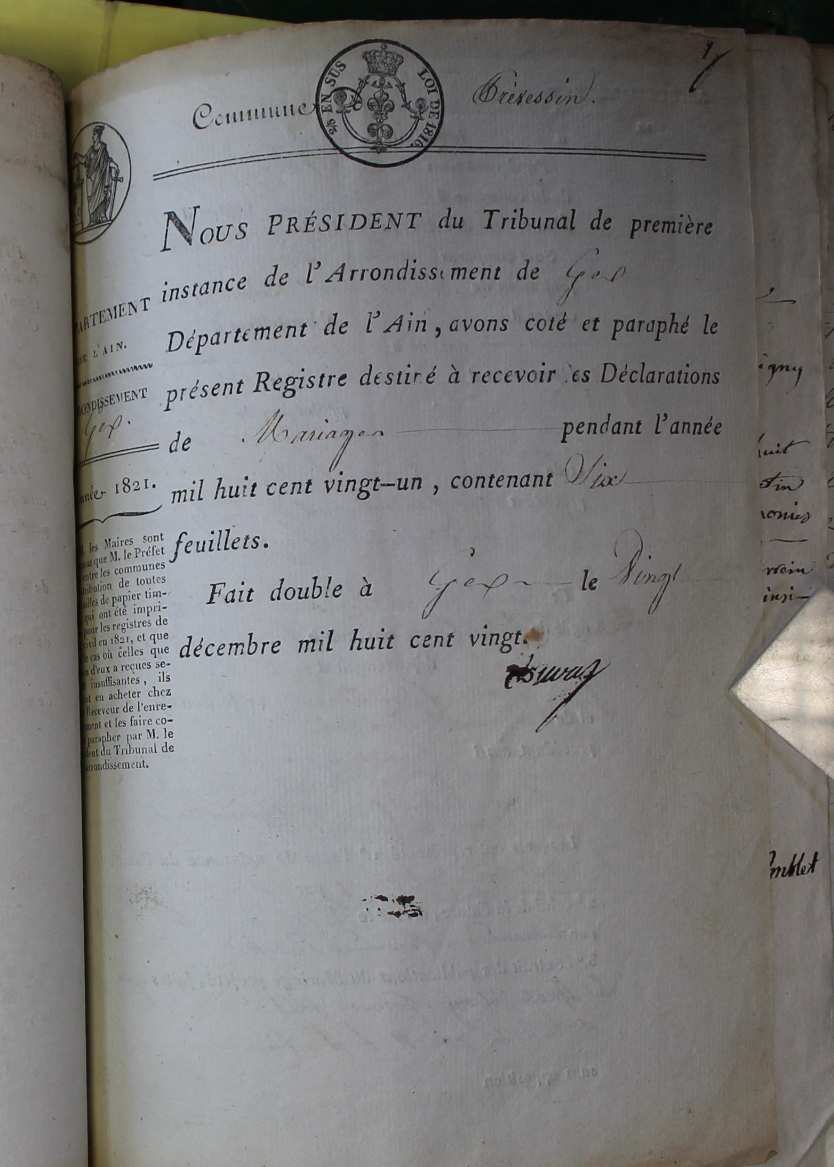 Commune Prévessin.
25 EN SUS LOI DE 1816.
NOUS PRÉSIDENT du Tribunal de première
instance de l'Arrondissement de Gex
Département de l'Ain, avons coté et paraphé le
présent Registre destiné à recevoir les Déclarations
de Mariages pendant l'année
mil huit cent vingt-un, contenant Six
feuillets.
Fait double à Gex le Vingt
décembre mil huit cent vingt.
PARTEMENT
L'AIN.
ONDISSEMENT
Gex.
année 1821.
les Maires sont
que M. le Préfet
entre les communes
ribution de toutes
illes de papier tim-
qui ont été impri-
pour les registres de
civil en 1821, et que
le cas où celles que
n d'eux a reçues se-
insuffisantes, ils
nt en acheter chez
Receveur de l'enre-
ment et les faire co-
parapher par M. le
dent du Tribunal de
arrondissement.
igny
huit
tin
omblet